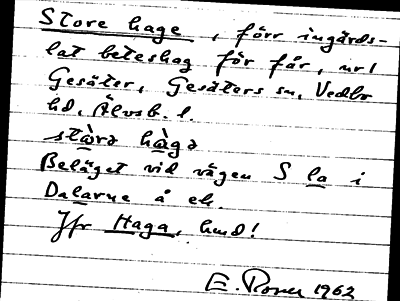 Store hage, förr ingärds-
lat beteshag för får, nr 1
Gesäter, Gesäters sn, Vedbo
hd, Älvsb. l.
stɷ̀rə hàgə
Beläget vid vägen S la i
Dalarne å ek.
Jfr Haga, hmd!
E. 1962